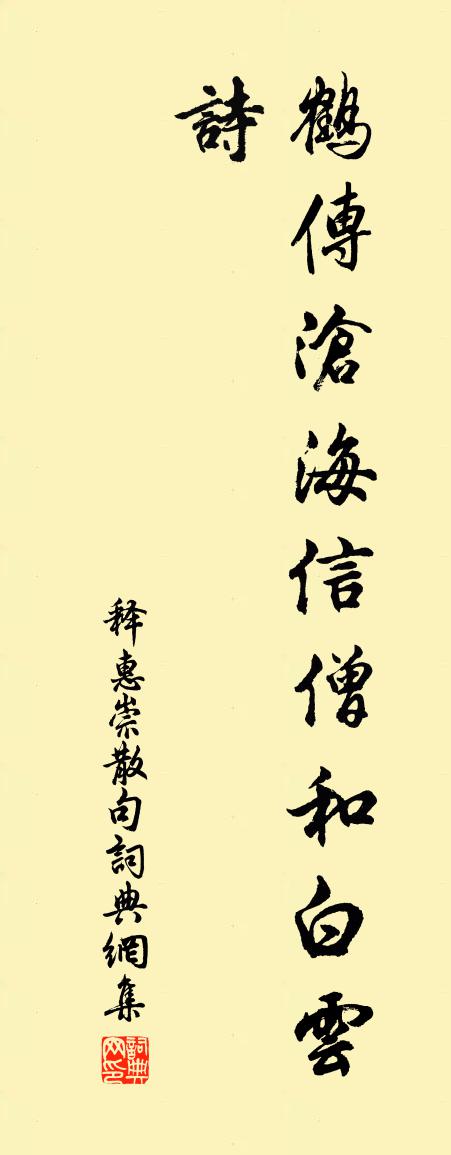 鶴傳滄海信僧和白雲
詩
释惠崇散句詞典網集
詞典網印